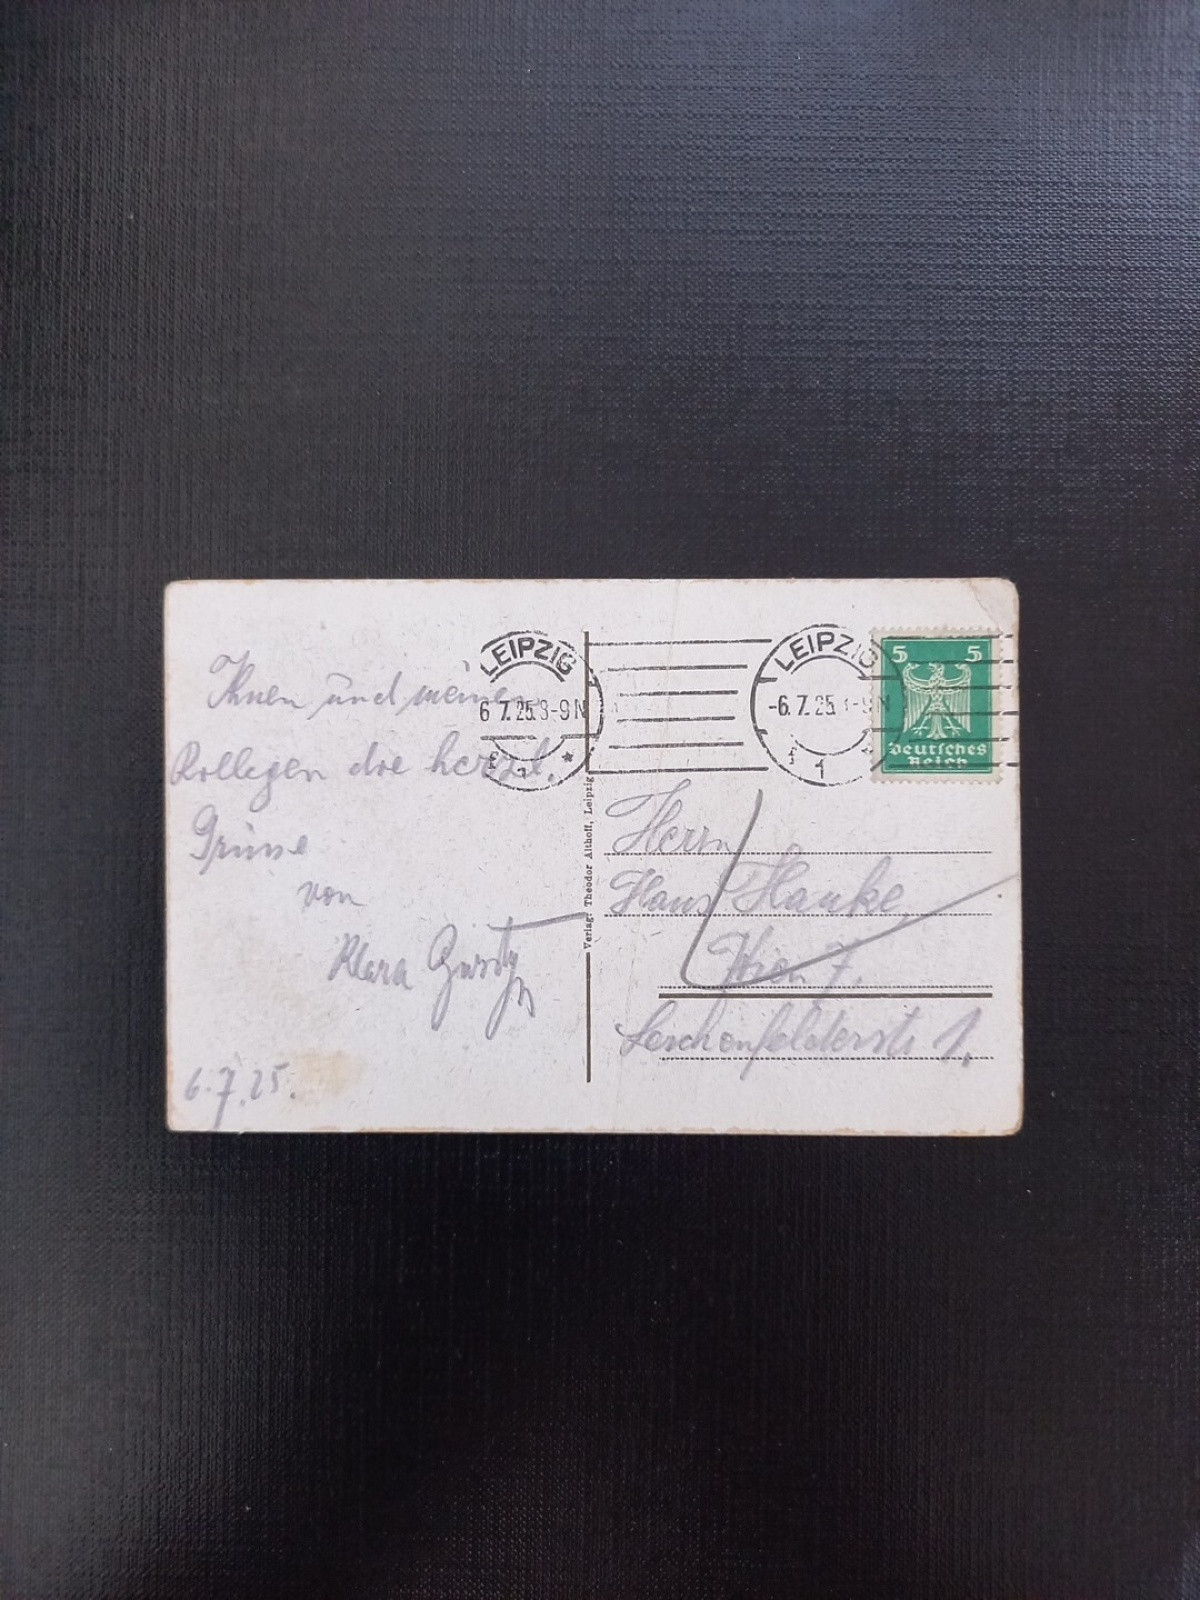 Ihnen und meinen
Kollegen die herzl.
Grüsse
von
Klara
6.7.25.
LEIPZIG
6 7.25.8-9N
1
*
LEIPZIG
-6.7.25.8-9N
1
5 5
Deutsches
Reich
Verlag: Theodor Althoff, Leipzig
Herrn
Hans Hanke
Wien 7.
Lerchenfelderstr 1.